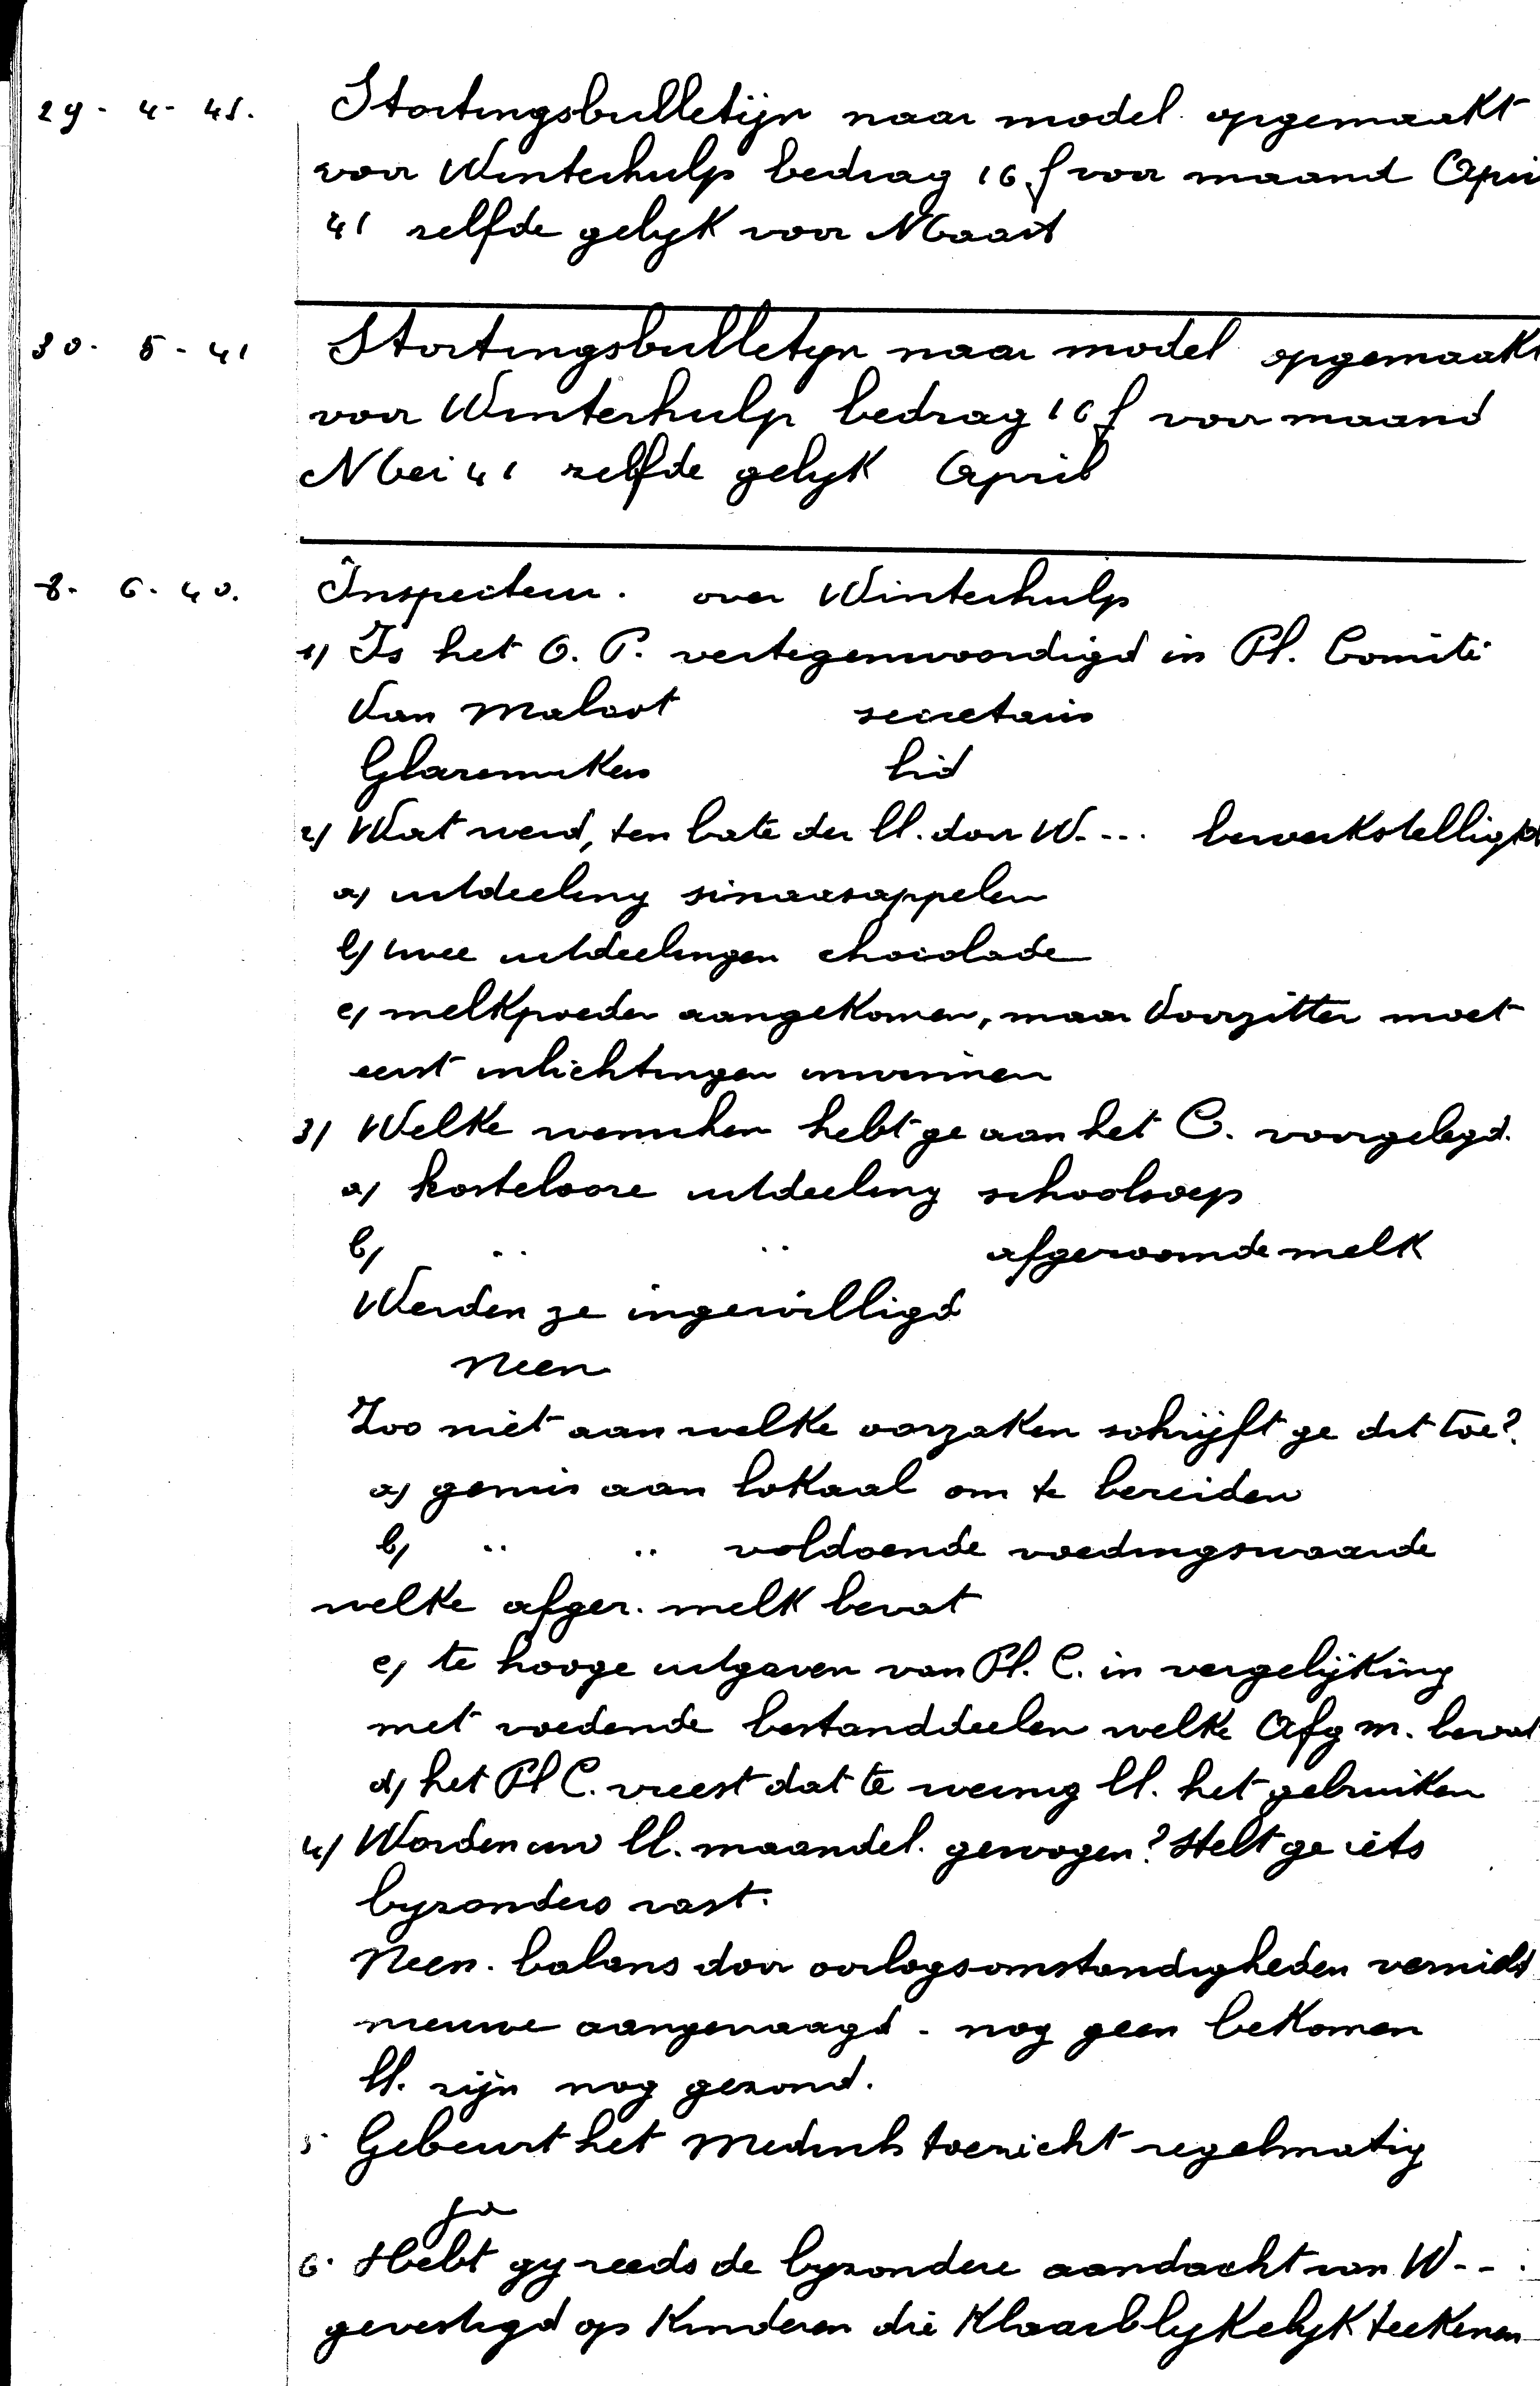 29 - 4 - 41. Stortingsbulletijn naar model opgemaakt
voor Winterhulp bedrag 16 f voor maand Apri
41 zelfde gelyk voor Maart
30 - 5 - 41 Stortingsbulletyn naar model opgemaakt
voor Winterhulp bedrag 16 f voor maand
Mei 41 zelfde gelyk April
8 - 6 - 40. Inspecteur. over Winterhulp
1) Is het O. P. vertegenwoordigd in Pl. Comité
Van Maloot secretaris
lid
2) Wat werd, ten bate der ll. door W. ... bewerkstelligd
a) uitdeeling sinaasappelen
b) twee uitdeelingen chocolade
c) melkpoeder aangekomen, maar Voorzitter moet
eerst inlichtingen inwinnen
3) Welke wenschen hebt ge aan het C. voorgelegd.
a) kostelooze uitdeeling schoolsoep
b) " " afgeroomde melk
Werden ze ingewilligd
Neen
Zoo niet aan welke oorzaken schrijft ge dit toe?
a) gemis aan lokaal om te bereiden
b) " " voldoende voedingswaarde
welke afger. melk bevat
c) te hooge uitgaven van Pl. C. in vergelijking
met voedende bestanddeelen welke Afg m. bevat
d) het Pl C. vreest dat te weinig ll. het gebruiken
4) Worden uw ll. maandel. gewogen? Stelt ge iets
byzonders vast.
Neen. balans door oorlogsomstandigheden vernield
nieuwe aangevraagd - nog geen bekomen
ll. zijn nog gezond.
5 Gebeurt het Medisch toezicht regelmatig
Ja
6. Hebt gy reeds de byzondere aandacht van W - - .
gevestigd op Kinderen die Klaarblykelyk teekenen